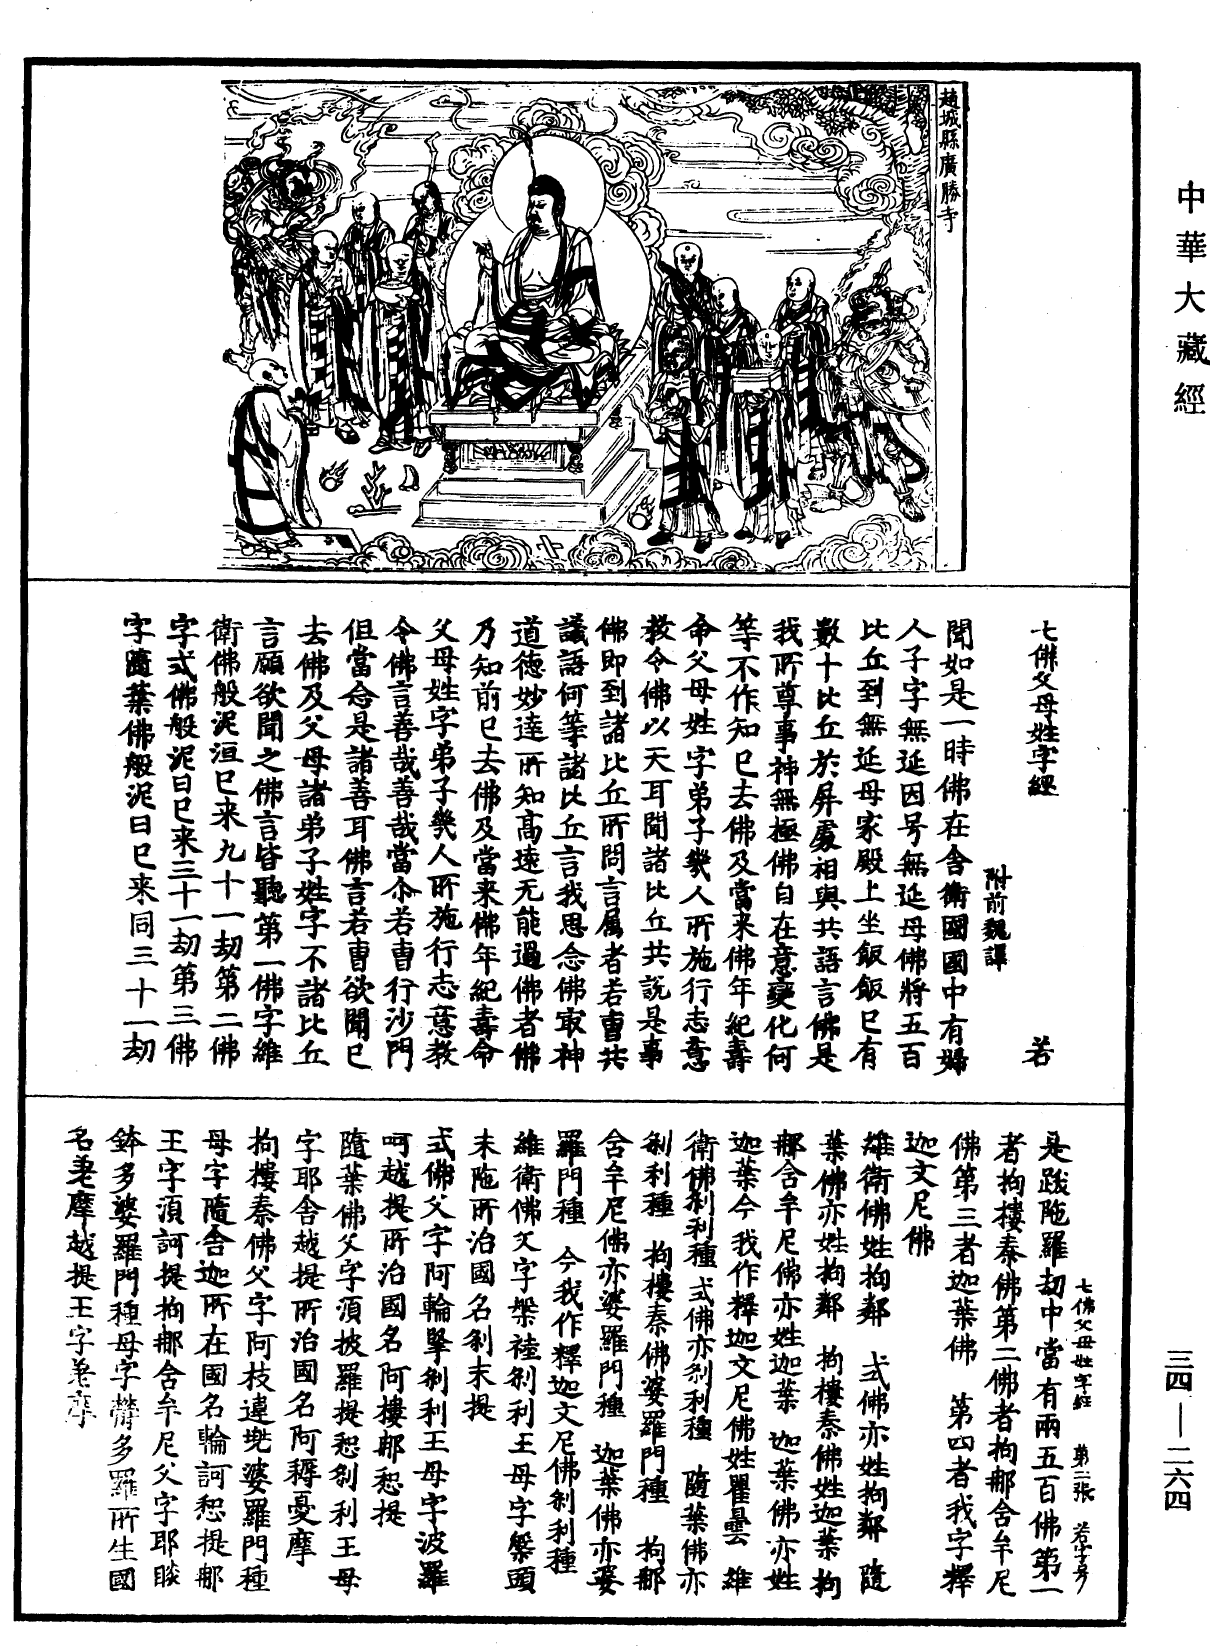 中華大藏經
趙城縣廣勝寺
七佛父母姓字經
若
附前魏譯
聞如是一時佛在舍衛國國中有婦
人子字無延因号無延母佛將五百
比丘到無延母家殿上坐飯飯已有
數十比丘於屏處相與共語言佛是
我所尊事神無極佛自在意變化何
等不作知已去佛及當来佛年紀壽
命父母姓字弟子幾人所施行志意
教令佛以天耳聞諸比丘共說是事
佛即到諸比丘所問言属者若曹共
議語何等諸比丘言我思念佛㝡神
道德妙達所知高遠无能過佛者佛
乃知前已去佛及當来佛年紀壽命
父母姓字弟子幾人所施行志意教
令佛言善哉善哉當尒若曹行沙門
但當念是諸善耳佛言若曹欲聞已
去佛及父母諸弟子姓字不諸比丘
言願欲聞之佛言皆聽第一佛字維
衛佛般泥洹已来九十一劫第二佛
字式佛般泥曰已来三十一劫第三佛
字隨葉佛般泥曰已来同三十一劫
七佛父母姓字經 第二張 若字号
是䟦陁羅劫中當有兩五百佛第一
者拘樓秦佛第二佛者拘那舍牟尼
佛第三者迦葉佛 第四者我字釋
迦文尼佛
維衛佛姓拘鄰 式佛亦姓拘鄰 隨
葉佛亦姓拘鄰 拘樓秦佛姓迦葉拘
那舍牟尼佛亦姓迦葉 迦葉佛亦姓
迦葉今我作釋迦文尼佛姓瞿曇 維
衛佛刹利種 式佛亦刹利種 隨葉佛亦
刹利種 拘樓秦佛婆羅門種 拘那
舍牟尼佛亦婆羅門種 迦葉佛亦婆
羅門種 今我作釋迦文尼佛刹利種
維衛佛父字槃裱刹利王母字槃頭
末陁所治國名刹末提
式佛父字阿輪拏刹利王母字波羅
呵越提所治國名阿樓那惒提
隨葉佛父字湏披羅提惒刹利王母
字耶舍越提所治國名阿耨憂摩
拘樓秦佛父字阿枝違兠婆羅門種
母字隨舍迦所在國名輪訶惒提那
王字湏訶提拘那舍牟尼父字耶睒
鉢多婆羅門種母字欝多羅所生國
名差摩越提王字差摩
三四—二六四